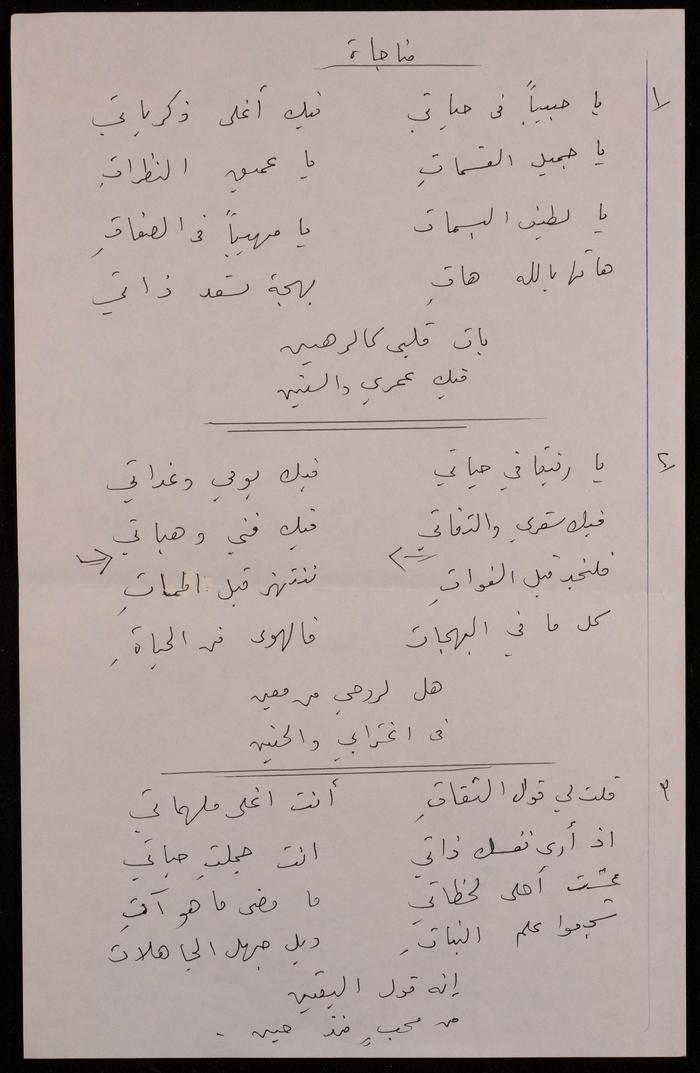 مناجاة
١/ يا حبيباً في حياتي فيك أغلى ذكرياتي
يا جميل القسماتِ يا عميق النظراتِ
يا لطيف البسمات يا مهيباً في الصفاتِ
هاتها بالله هاتِ بهجة تسعد ذاتي
بات قلبي كالرهين
فيك عمري والسنين
٢/ يا رفيقا في حياتي فيك يومي وغداتي
فيك شعري والتفاتي فيك فني وهباتي
فلنجد قبل الفواتِ ننتهز قبل المماتِ
كل ما في البهجات فالهوى فن الحياةِ
هل لروحي من معين
في اغترابي والحنين
٣ قلت لي قول الثقاتِ أنت اغلى ملهماتي
اذ أرى نفسك ذاتي انت جملتِ حياتي
عشت أحلى لحظاتي ما مضى ما هو آتِ
علم ويل جهل الجاهلات
إنه قول اليقين
من محبٍ منذ حين .